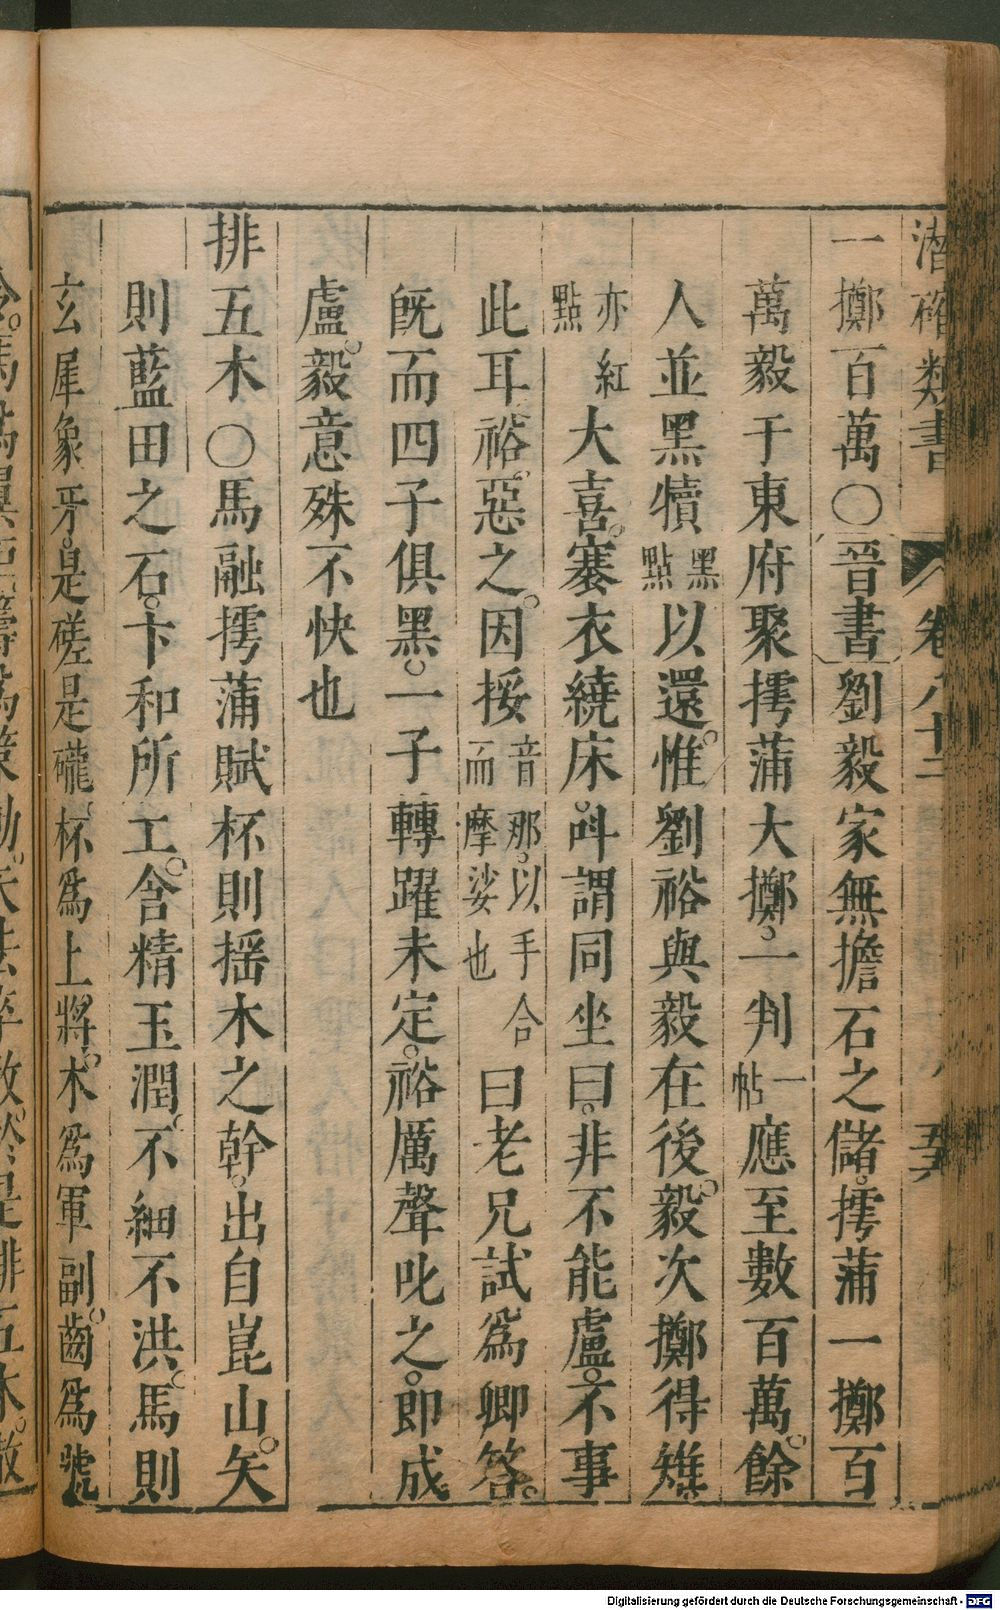 潛確類書 卷八十二 八 五
一擲百萬〇晉書劉毅家無擔石之儲。摴蒱一擲百
萬毅于東府聚摴蒱大擲。一判一帖應至數百萬。餘
人並黑犢黑點以還。惟劉裕與毅在後。毅次擲得雉。
亦紅點大喜。褰衣繞床。呌謂同坐曰。非不能盧。不事
此耳裕。惡之。因挼音那。以手合而摩娑也曰老兄試爲卿答。
旣而四子俱黑。一子轉躍未定。裕厲聲叱之。即成
盧。毅意殊不快也
排五木〇馬融摴蒲賦杯則摇木之幹。出自崑山。矢
則藍田之石。卞和所工。含精玉潤。不細不洪。馬則
玄犀象牙。是磋是礲。杯爲上將。木爲軍副。齒爲號
Digitalisierung gefördert durch die Deutsche Forschungsgemeinschaft - DFG